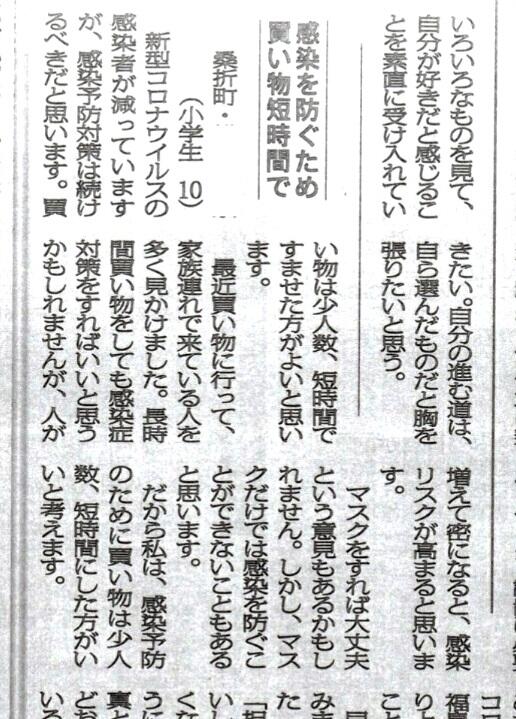 いろいろなものを見て、
自分が好きだと感じるこ
とを素直に受け入れてい
きたい。自分の進む道は、
自ら選んだものだと胸を
張りたいと思う。
感染を防ぐため
買い物短時間で
桑折町・
(小学生 10)
新型コロナウイルスの
感染者が減っています
が、感染予防対策は続け
るべきだと思います。買
い物は少人数、短時間で
すませた方がよいと思い
ます。
最近買い物に行って、
家族連れで来ている人を
多く見かけました。長時
間買い物をしても感染症
対策をすればいいと思う
かもしれませんが、人が
増えて密になると、感染
リスクが高まると思いま
す。
マスクをすれば大丈夫
という意見もあるかもし
れません。しかし、マス
クだけでは感染を防ぐこ
とができないこともある
と思います。
だから私は、感染予防
のために買い物は少人
数、短時間にした方がい
いと考えます。